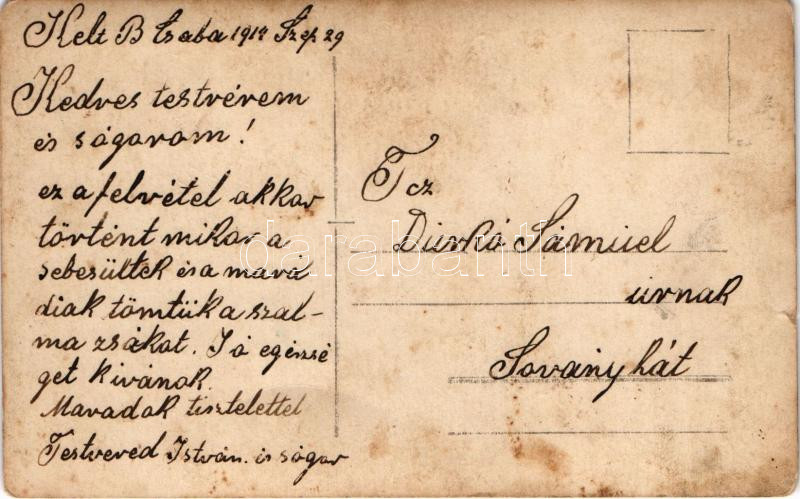 Kelt B Csaba 1914 Szep. 29
Kedves testvérem
és ságorom!
ez a felvétel akkor
történt mikor a
sebesültek és a mará
diak tömtük a szal-
ma zsákot. Jó egéssé
get kivánok.
Maradok tisztelettel
Testvered István. és ságor
T cz
Durkó Sámuel
urnak
Soványhát
darabanth